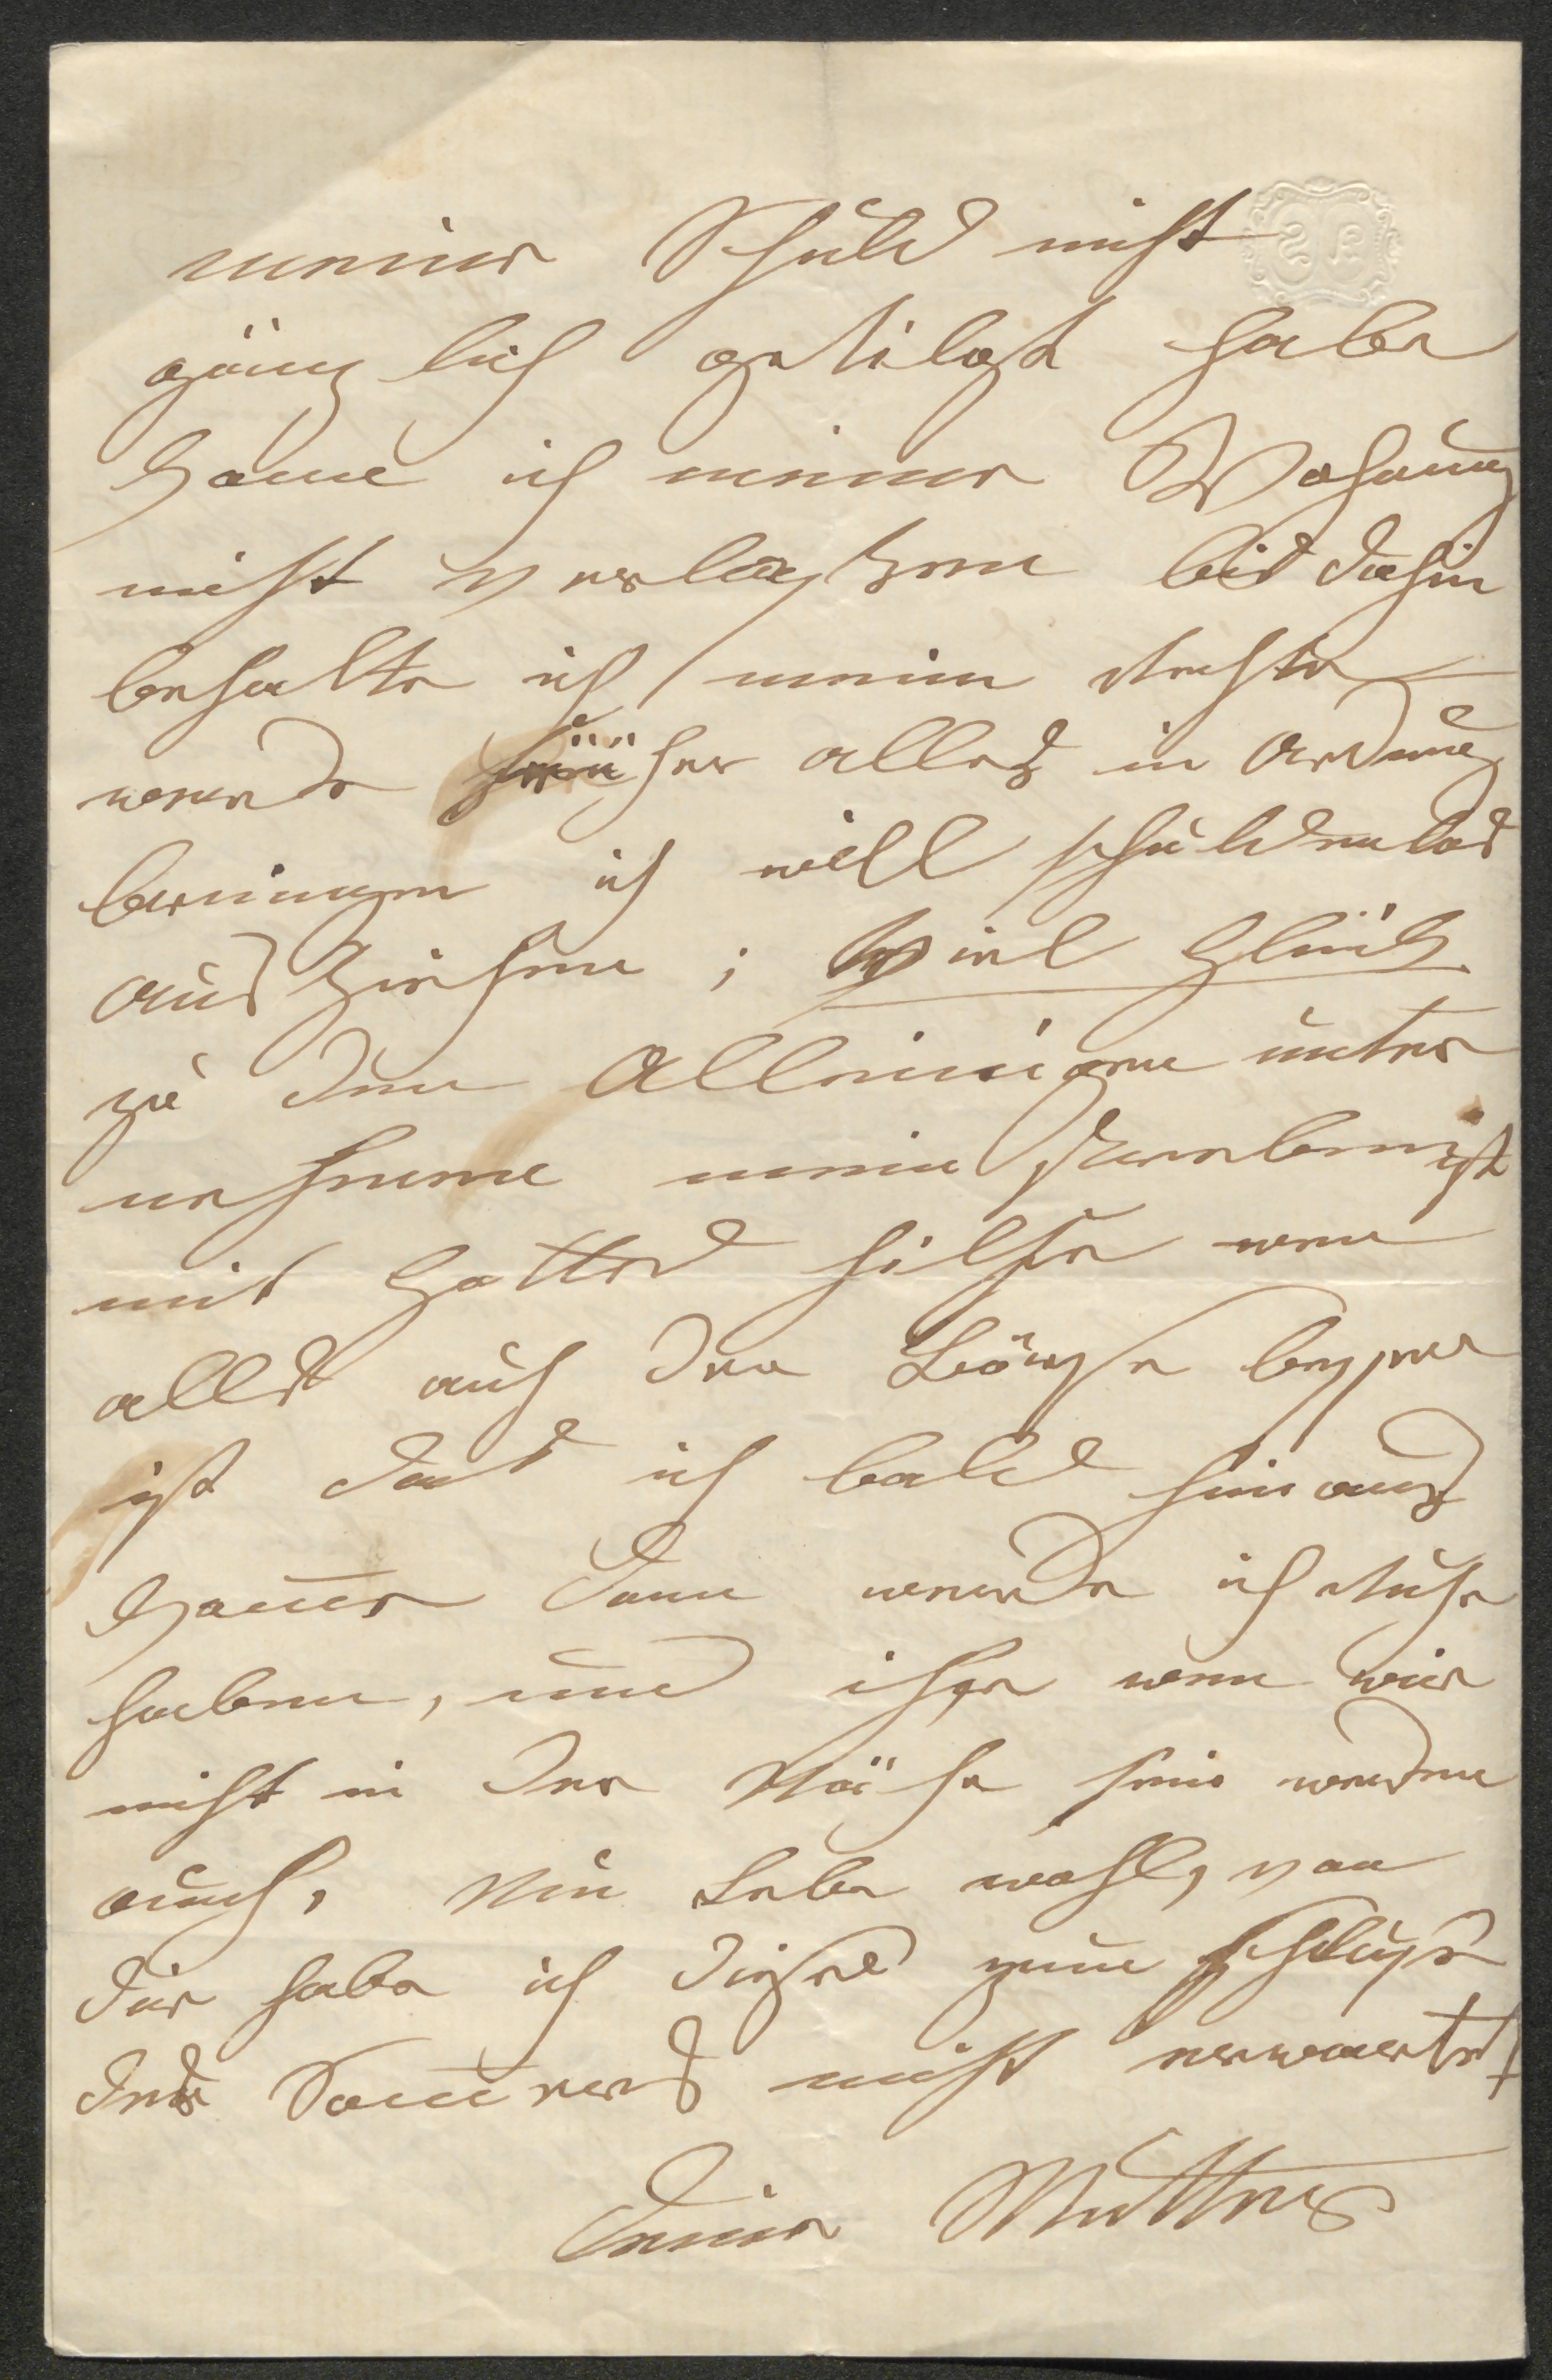 meine Schuld nicht
gänzlich getilgt habe
kane ich meine Wohung
nicht verlaßen bis dahin
behalte ich mein Rechte
werde früher alles in Ordnug
beringen ich will schuldenlos
aus ziehen ; Viel Glück
zu dem Alleinigen unter
nehmen mein Sterben ist
mit Gottes hilfe wen
alles auf der Börse besser
ist das ich bald hinaus
kome dann werde ich Ruhe
haben, und ihr wen wir
nicht in der Nähe sein werden
auch, Nun Lebe wohl, von
dir habe ich dieses zum Schluße
des Somers nicht erwartet
Deine Mutter